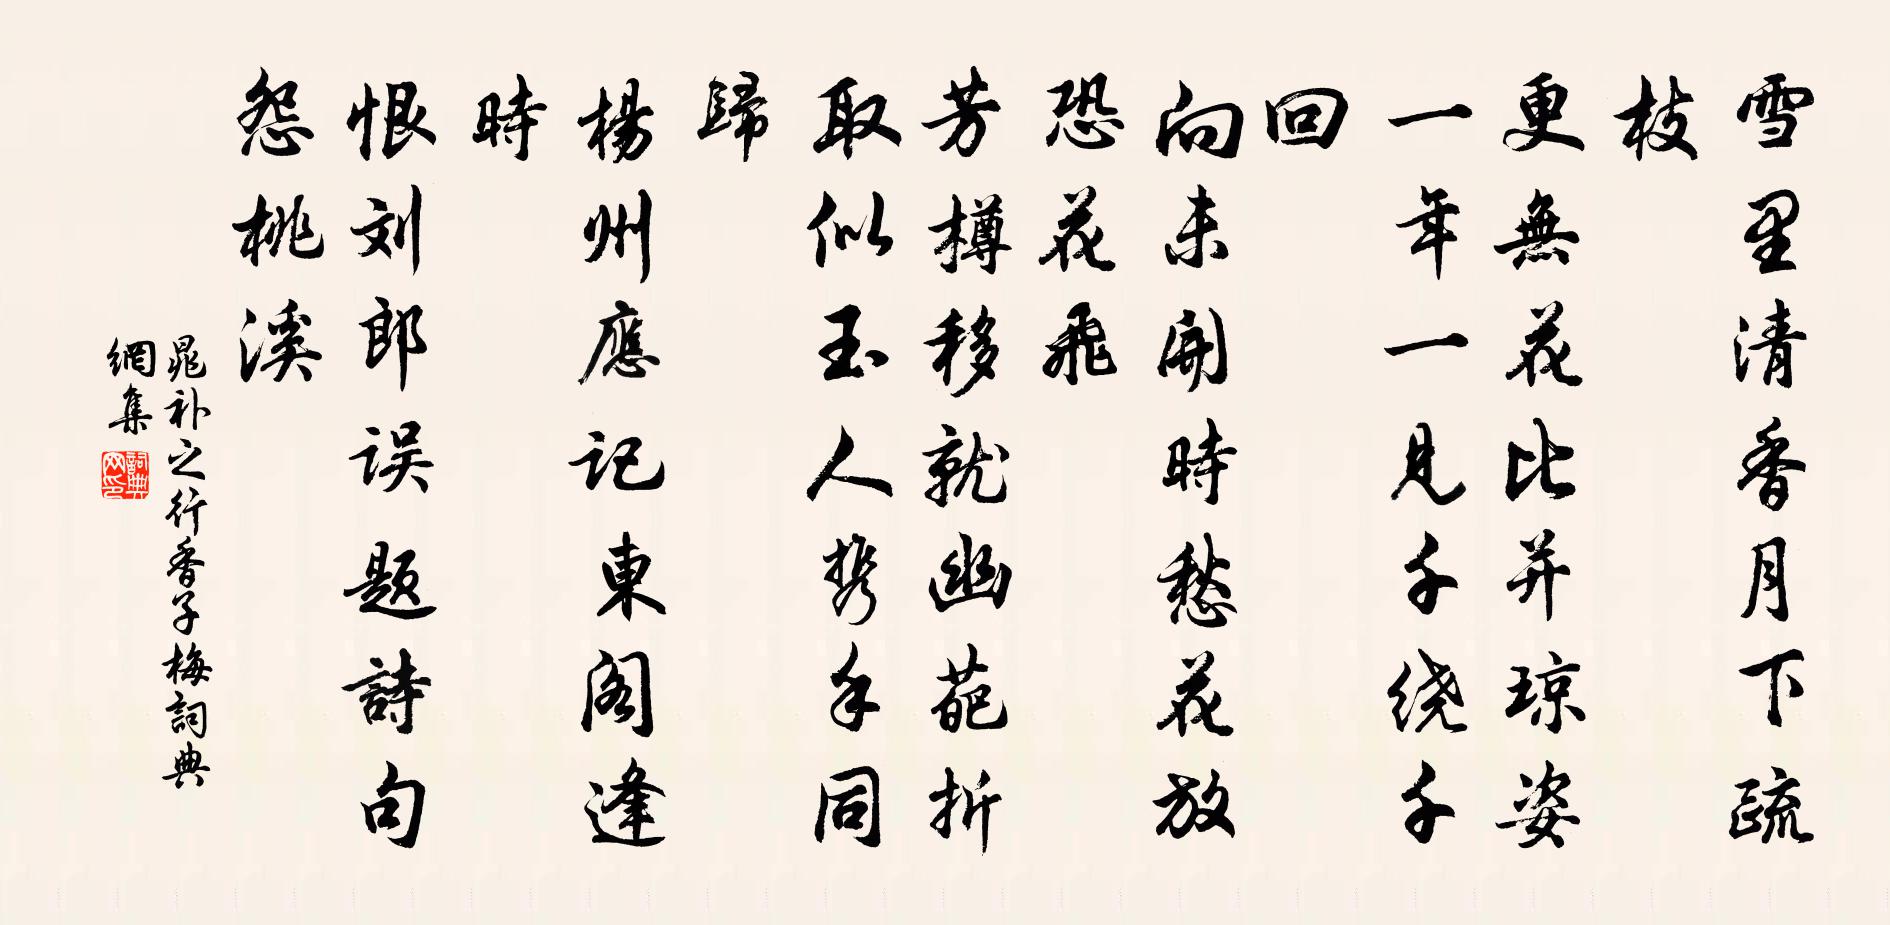 雪里清香月下疏
枝
更無花比并琼姿
一年一見千绕千
回
向未開時愁花放
恐花飛
芳樽移就幽葩折
取似玉人携手同
歸
楊州應記東阁逢
時
恨刘郎误题詩句
怨桃溪
晁补之行香子梅詞典
網集
詞典網印